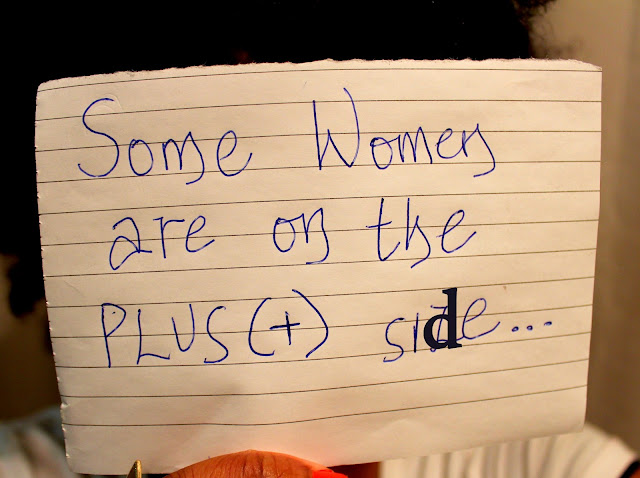 Some Women
are on the
PLUS(+) side...